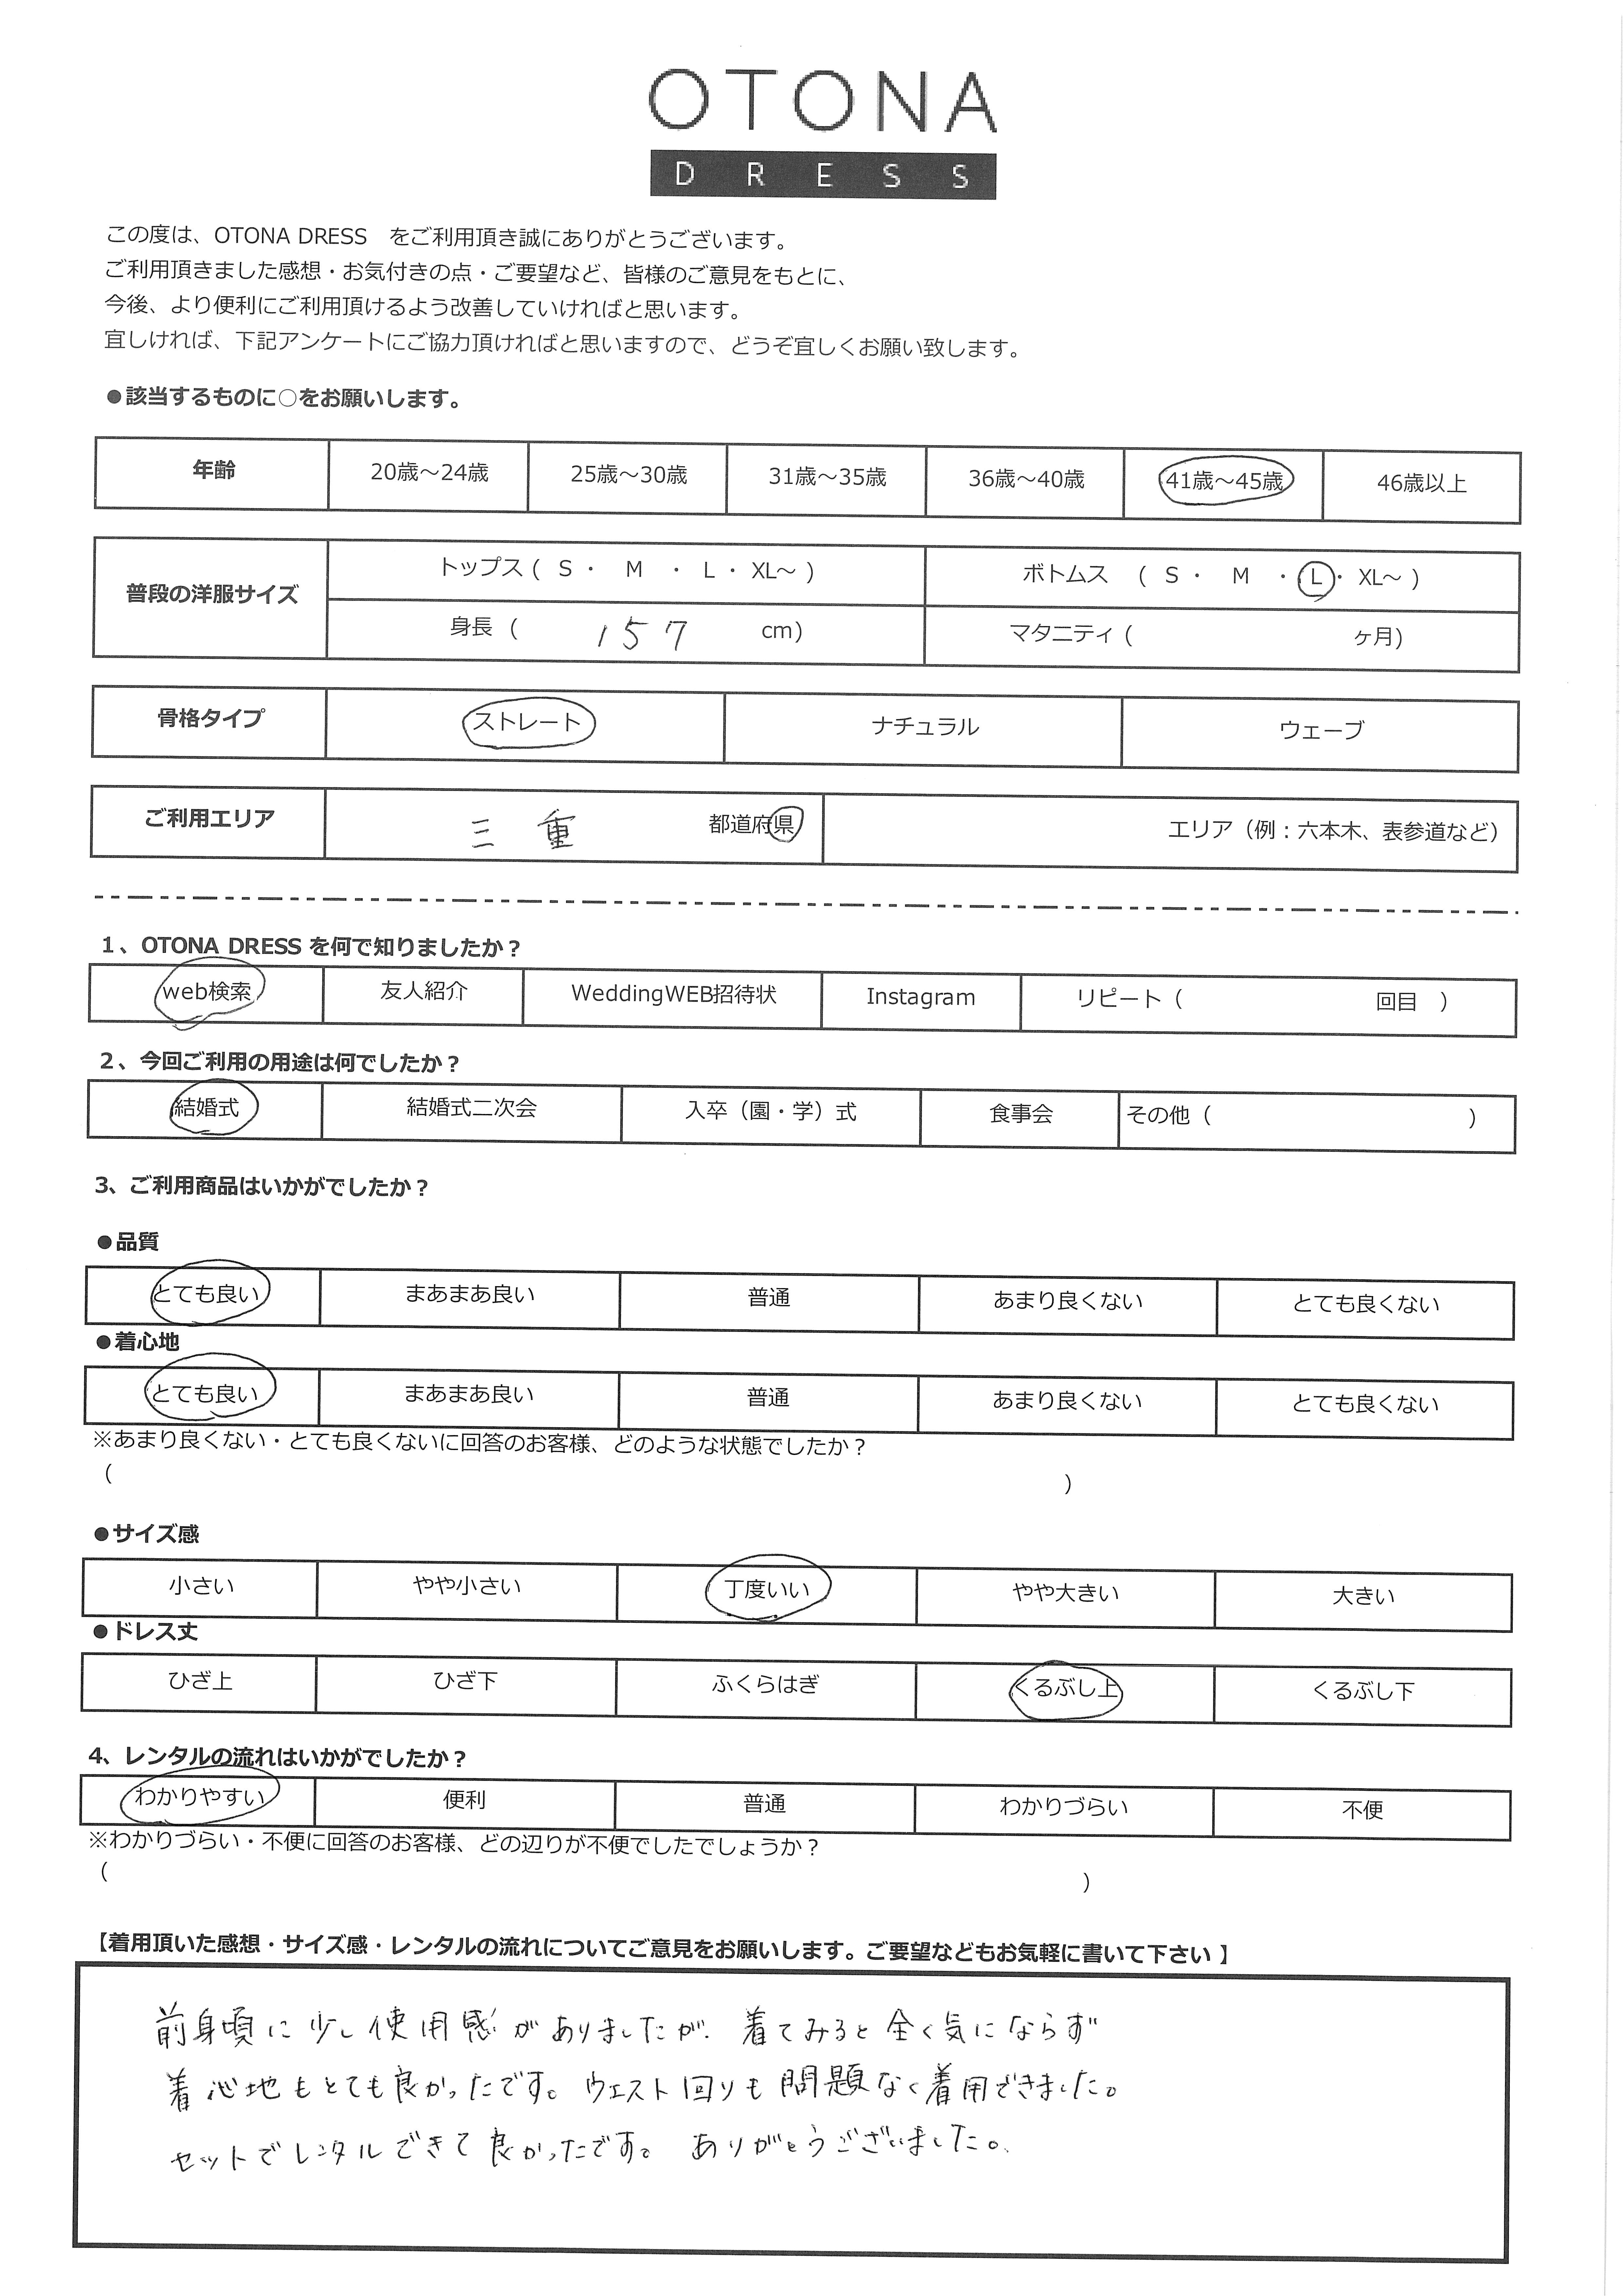 OTONA
DRESS
この度は、OTONA DRESS　をご利用頂き誠にありがとうございます。
ご利用頂きました感想・お気付きの点・ご要望など、皆様のご意見をもとに、
今後、より便利にご利用頂けるよう改善していければと思います。
宜しければ、下記アンケートにご協力頂ければと思いますので、どうぞ宜しくお願い致します。
●該当するものに○をお願いします。
年齢 20歳～24歳 25歳～30歳 31歳～35歳 36歳～40歳 41歳～45歳 46歳以上
普段の洋服サイズ トップス ( S ・ M ・ L ・ XL～ ) ボトムス ( S ・ M ・ L ・ XL～ )
身長 ( 157 cm) マタニティ ( ヶ月)
骨格タイプ ストレート ナチュラル ウェーブ
ご利用エリア 三重 都道府県 エリア（例：六本木、表参道など）
1、OTONA DRESS を何で知りましたか？
web検索 友人紹介 WeddingWEB招待状 Instagram リピート（ 回目 ）
2、今回ご利用の用途は何でしたか？
結婚式 結婚式二次会 入卒（園・学）式 食事会 その他（ ）
3、ご利用商品はいかがでしたか？
●品質
とても良い まあまあ良い 普通 あまり良くない とても良くない
●着心地
とても良い まあまあ良い 普通 あまり良くない とても良くない
※あまり良くない・とても良くないに回答のお客様、どのような状態でしたか？
（ ）
●サイズ感
小さい やや小さい 丁度いい やや大きい 大きい
●ドレス丈
ひざ上 ひざ下 ふくらはぎ くるぶし上 くるぶし下
4、レンタルの流れはいかがでしたか？
わかりやすい 便利 普通 わかりづらい 不便
※わかりづらい・不便に回答のお客様、どの辺りが不便でしたでしょうか？
（ ）
【着用頂いた感想・サイズ感・レンタルの流れについてご意見をお願いします。ご要望などもお気軽に書いて下さい 】
前身頃に少し使用感がありましたが、着てみると全く気にならず
着心地もとても良かったです。ウェスト回りも問題なく着用できました。
セットでレンタルできて良かったです。 ありがとうございました。